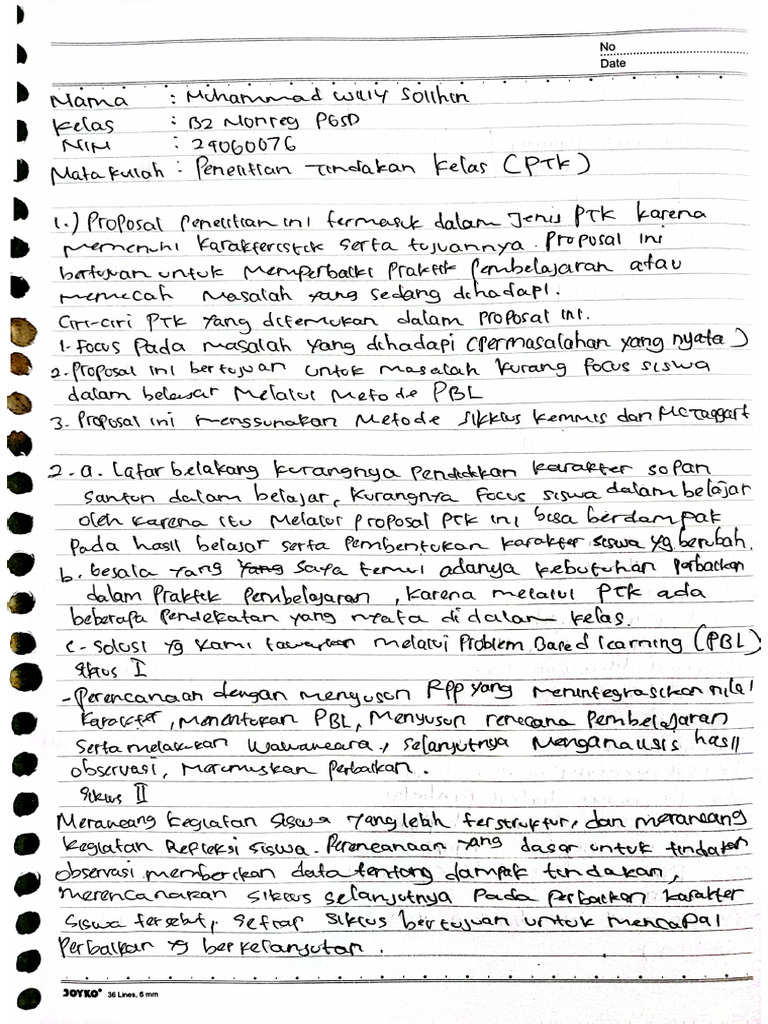 No
Date
Nama : Muhammad Willy Solihin
Kelas : B2 Nonreg PGSD
NIM : 24060076
Mata Kuliah : Penelitian Tindakan Kelas (PTK)
1.) Proposal Penelitian ini termasuk dalam Jenis PTK karena
memenuhi karakteristik serta tujuannya. Proposal ini
bertujuan untuk memperbaiki Praktik Pembelajaran atau
memecah masalah yang sedang dihadapi.
Ciri-ciri PTK yang ditemukan dalam proposal ini.
1. Focus Pada masalah yang dihadapi (Permasalahan yang nyata)
2. Proposal ini bertujuan untuk masalah kurang focus siswa
dalam belajar Melalui Metode PBL
3. Proposal ini menggunakan Metode Sikklus Kemmis dan McTaggart
2. a. Latar belakang kurangnya Pendidikan karakter sopan
santun dalam belajar, kurangnya focus siswa dalam belajar
oleh karena itu Melalui Proposal PTK ini bisa berdampak
Pada hasil belajar serta Pembentukan karakter siswa yg berubah.
b. besala yang yang saya temui adanya kebutuhan Perbaikan
dalam Praktik Pembelajaran, karena melalui PTK ada
beberapa Pendekatan yang nyata di dalam kelas.
c - Solusi yg kami tawarkan melalui Problem Based learning (PBL)
Siklus I
- Perencanaan dengan menyusun RPP yang mengintegrasikan nilai
karakter, Menentukan PBL, Menyusun rencana Pembelajaran
Serta melakukan wawancara, selanjutnya Menganalisis hasil
observasi, Merumuskan Perbaikan.
Siklus II
Merancang kegiatan siswa yang lebih terstruktur, dan merancang
kegiatan Repleksi siswa. Perencanaan yang dasar untuk tindakan
observasi memberikan data tentang dampak tindakan,
merencanakan siklus selanjutnya Pada Perbaikan karakter
siswa tersebut, setiap siklus bertujuan untuk mencapai
Perbaikan yg berkelanjutan.
JOYKO® 36 Lines, 6 mm